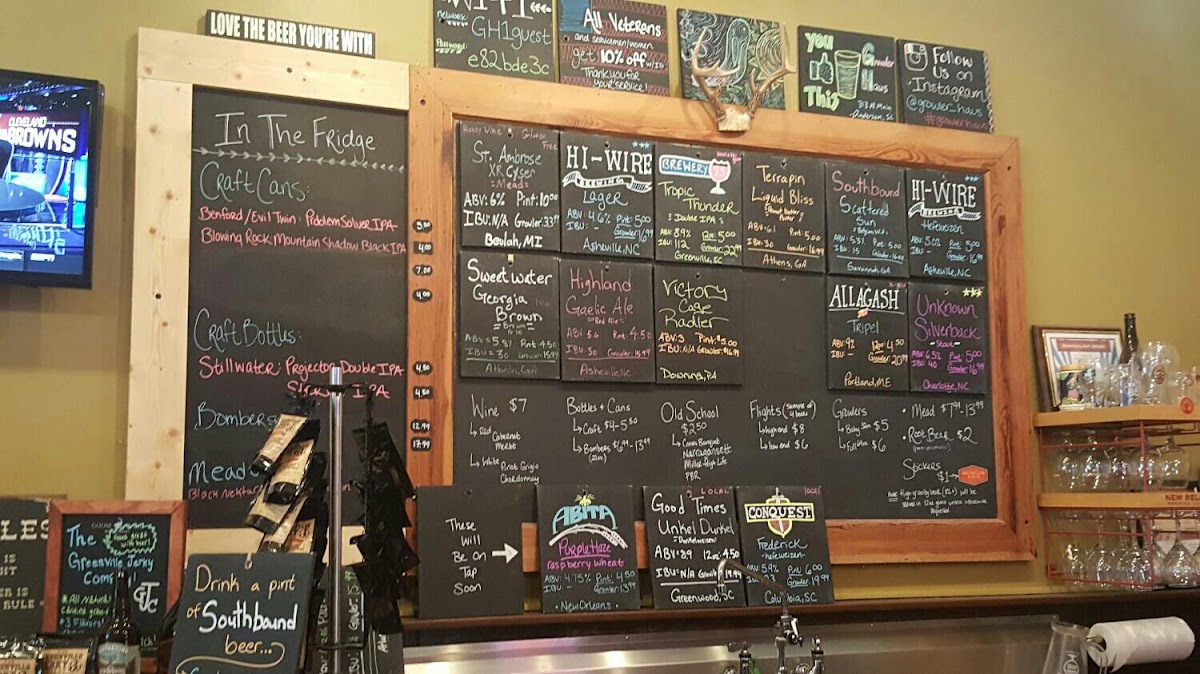 LOVE THE BEER YOU'RE WITH
network:
GH1guest
Password:
e82bde3c
All Veterans
and servicemen/women
get 10% off w/ID
Thank you for
your service!
you
This
Growler
Haus
313 N. Main
Anderson, SC
Follow
Us on
Instagram
@growler_haus
#growlerhaus
CLEVELAND
BROWNS
ESPN
In The Fridge
Craft Cans:
Benford/Evil Twin: Problem Solver IPA
Blowing Rock Mountain Shadow Black IPA
4.00
7.00
4.00
Craft Bottles:
Stillwater: Projector Double IPA
IPA
4.50
4.50
Bombers
12.99
17.99
Mead
Black Nektar
Honey Wine Gluten Free
St. Ambrose
XR Cyser
=Mead=
ABV: 6% Pint: 10.00
IBU: N/A Growler: 33.99
Beulah, MI
HI-WIRE
BREWING
Lager
ABV: 4.6% Pint: 5.00
IBU: - Growler: 16.99
Asheville, NC
BREWERY
Tropic
Thunder
=Double IPA=
ABV: 8.9% 12oz: 5.00
IBU: 112 Growler: 22.99
Greenville, SC
Terrapin
Liquid Bliss
Peanut butter
Porter
ABV: 6.1 Pint: 5.00
IBU: 30 Growler: 16.99
Athens, GA
Southbound
Scattered
Sun
=Belgian Wit=
ABV: 5.3% Pint: 5.00
IBU: 15 Growler: 16.99
Savannah, GA
HI-WIRE
BREWING
Hefeweizen
ABV: 5.0% Pint: 5.00
IBU: - Growler: 16.99
Asheville, NC
Sweetwater
Georgia
Brown
=Brown Ale=
ABV = 5.8% Pint: 4.50
IBU = 30 Growler: 15.99
Atlanta, GA
Highland
Gaelic Ale
=Red Ale=
ABV: 5.6 Pint: 4.50
IBU: 30 Growler: 15.99
Asheville
Victory
Cage
Radler
ABV: 3 Pint: $5.00
IBU: N/A Growler: $16.99
Downing, PA
ALLAGASH
Tripel
ABV: 9% 4.50
IBU: - Growler: 20.99
Portland, ME
Unknown
Silverback
=Stout=
ABV: 6.5% Pint: 5.00
IBU: 40 Growler: 16.99
Charlotte, NC
Wine $7
↳ Red
Cabernet
Merlot
↳ White
Pinot Grigio
Chardonnay
Bottles + Cans
↳ Craft $4-5.50
↳ Bombers $6.99-13.99
(22oz)
Old School
$2.50
↳ Cans
Narragansett
Miller High Life
PBR
Flights (sample of 4 beers)
↳ high end $8
↳ low end $6
Growlers
↳ Baby Jam $5
↳ Full Size $6
• Mead $7.99-13.99
• Root Beer $2
Stickers
$1 →
Note: High gravity beer (8%+) will be
served in 12oz glass unless otherwise
requested
These
Will
Be on →
Tap
Soon
ABITA
Purple Haze
raspberry wheat
ABV: 4.75% Pint: 4.50
IBU: - Growler: 15.99
• New Orleans •
LOCAL
Good Times
Unkel Dunkel
=Dunkelweizen=
ABV: 8.9 12oz: 4.50
IBU: N/A Growler: 19.99
Greenwood, SC
local
CONQUEST
Frederick
-hefeweizen-
ABV: 5.9% Pint: 6.00
IBU: - Growler: 19.99
Columbia, SC
NEW BE
The
Greenville Jerky
Com
Goes great
with beer!
* All Natural
* 3 Flavors
Drink a pint
of Southbound
beer...